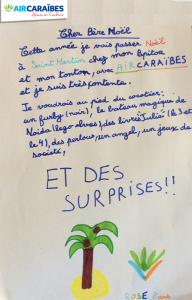 AIRCARAÏBES
Cher Père Noël
Cette année je vais passer Noël
à Saint Martin chez mon
et mon tonton, avec AIR CARAÏBES
et je suis très contente.
Je voudrais au pied du cocotier:
un furby (noir), le bateau magique de
(lego elves), des livres Julia (le 3 et
le 4), des perlous, un angel, un jeux de
société,
ET DES
SURPRISES!!
ROSE